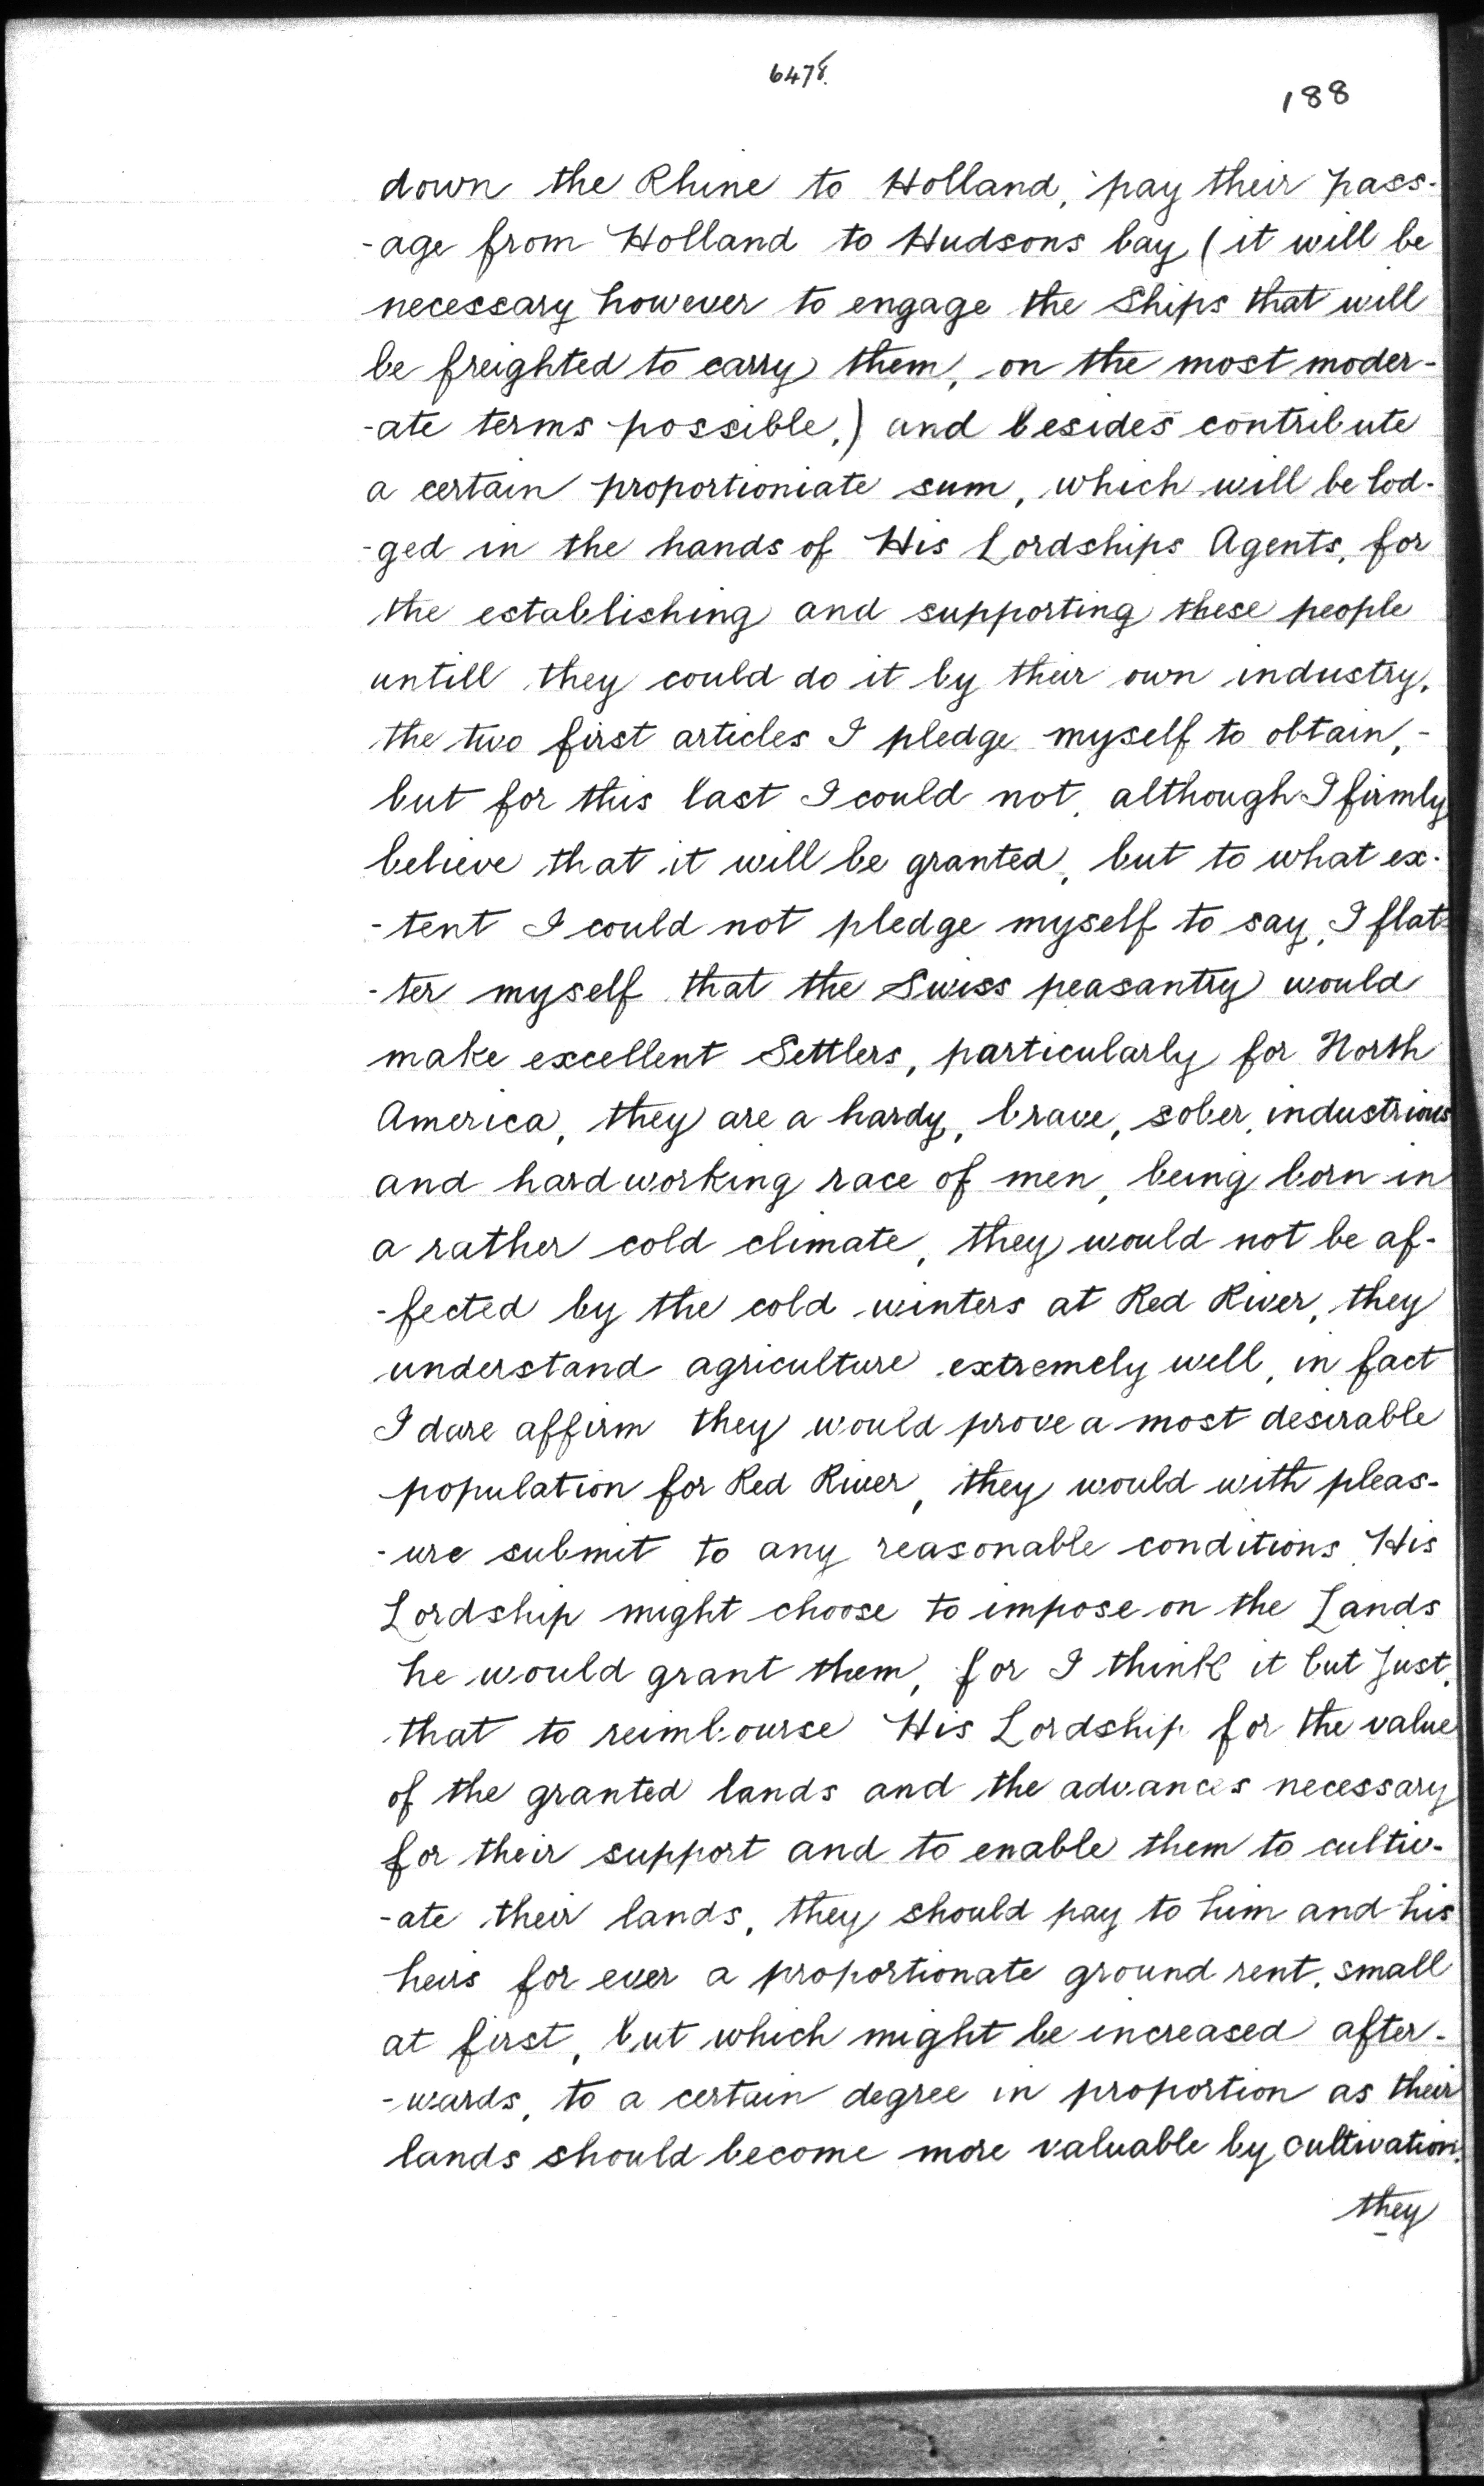 6478.
188
down the Rhine to Holland, pay their pass-
-age from Holland to Hudsons bay (it will be
necessary however to engage the Ships that will
be freighted to carry them, on the most moder-
-ate terms possible,) and besides contribute
a certain proportioniate sum, which will be lod-
-ged in the hands of His Lordships Agents, for
the establishing and supporting these people
untill they could do it by their own industry,
the two first articles I pledge myself to obtain, -
but for this last I could not, although I firmly
believe that it will be granted, but to what ex-
-tent I could not pledge myself to say, I flat-
-ter myself that the Swiss peasantry would
make excellent Settlers, particularly for North
America, they are a hardy, brave, sober, industrious
and hardworking race of men, being born in
a rather cold climate, they would not be af-
-fected by the cold winters at Red River, they
understand agriculture extremely well, in fact
I dare affirm they would prove a most desirable
population for Red River, they would with pleas-
-ure submit to any reasonable conditions His
Lordship might choose to impose on the Lands
he would grant them, for I think it but just,
that to reimbourse His Lordship for the value
of the granted lands and the advances necessary
for their support and to enable them to cultiv-
-ate their lands, they should pay to him and his
heirs for ever a proportionate ground rent, small
at first, but which might be increased after-
-wards, to a certain degree in proportion as their
lands should become more valuable by cultivation.
they